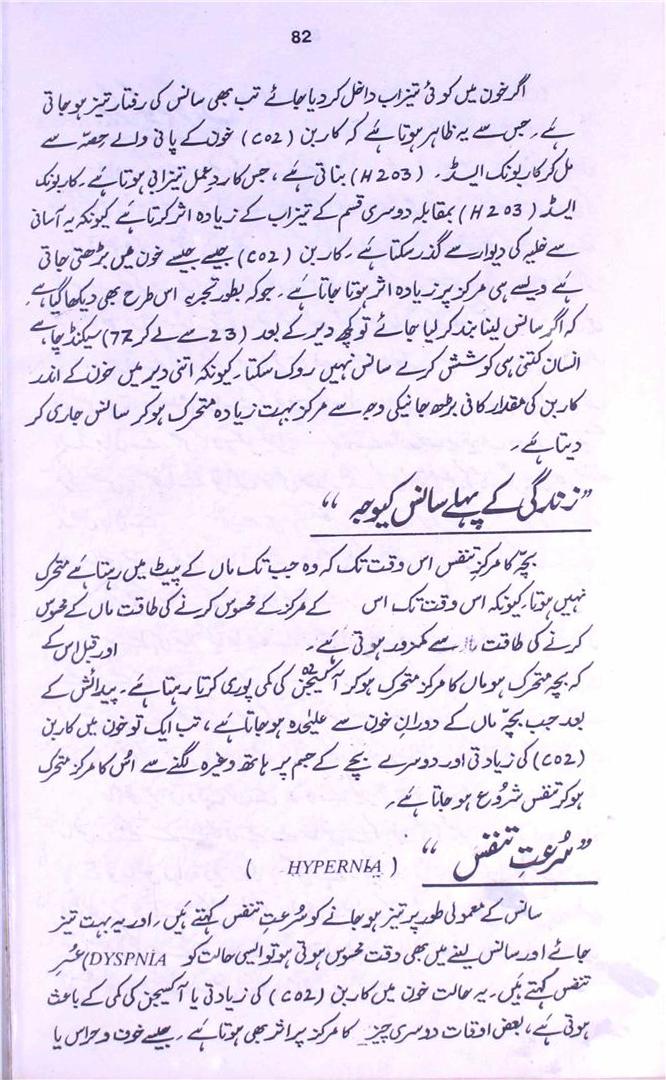 82
اگر خون میں کوئی تیزاب داخل کر دیا جائے تب بھی سانس کی رفتار تیز ہو جاتی
ہے۔ جس سے یہ ظاہر ہوتا ہے کہ کاربن (CO2) خون کے پانی والے حصّہ سے
مل کر کاربونک ایسڈ۔ (H2O3) بناتی ہے، جس کا ردِ عمل تیزابی ہوتا ہے۔ کاربونک
ایسڈ (H2O3) بمقابلہ دوسری قسم کے تیزاب کے زیادہ اثر کرتا ہے کیونکہ یہ آسانی
سے خلیہ کی دیوار سے گذر سکتا ہے۔ کاربن (CO2) جیسے جیسے خون میں بڑھتی جاتی
ہے ویسے ہی مرکز پر زیادہ اثر ہوتا جاتا ہے۔ جو کہ بطور تجربہ اس طرح بھی دیکھا گیا ہے
کہ اگر سانس لینا بند کر لیا جائے تو کچھ دیر کے بعد (23 سے لے کر 77) سیکنڈ چاہے
انسان کتنی ہی کوشش کرے سانس نہیں روک سکتا۔ کیونکہ اتنی دیر میں خون کے اندر
کاربن کی مقدار کافی بڑھ جانیکی وجہ سے مرکز بہت زیادہ متحرک ہو کر سانس جاری کر
دیتا ہے۔
”زندگی کے پہلے سانس کیوجہ“
بچّہ کا مرکزِ تنفس اس وقت تک کہ وہ جب تک ماں کے پیٹ میں رہتا ہے متحرک
نہیں ہوتا۔ کیونکہ اس وقت تک اس کے مرکز کے محسوس کرنے کی طاقت ماں کے محسوس
کرنے کی طاقت سے کمزور ہوتی ہے۔ اور قبل اس کے
کہ بچہ متحرک ہو ماں کا مرکز متحرک ہو کر آکسیجن کی کمی پوری کرتا رہتا ہے۔ پیدائش کے
بعد جب بچّہ ماں کے دورانِ خون سے علیٰحدہ ہو جاتا ہے، تب ایک تو خون میں کاربن
(CO2) کی زیادتی اور دوسرے بچے کے جسم پر ہاتھ وغیرہ لگنے سے اُس کا مرکز متحرک
ہو کر تنفس شروع ہو جاتا ہے۔
”سُرعتِ تنفس“ (HYPERNIA)
سانس کے معمولی طور پر تیز ہو جانے کو سُرعتِ تنفس کہتے ہیں۔ اور یہ بہت تیز
جائے اور سانس لینے میں بھی دقت محسوس ہوتی ہو تو ایسی حالت کو DYSPNIA) عُسرِ
تنفس کہتے ہیں۔ یہ حالت خون میں کاربن (CO2) کی زیادتی یا آکسیجن کی کمی کے باعث
ہوتی ہے، بعض اوقات دوسری چیز کا مرکز پر اثر بھی ہوتا ہے۔ جیسے خوف و حراس یا